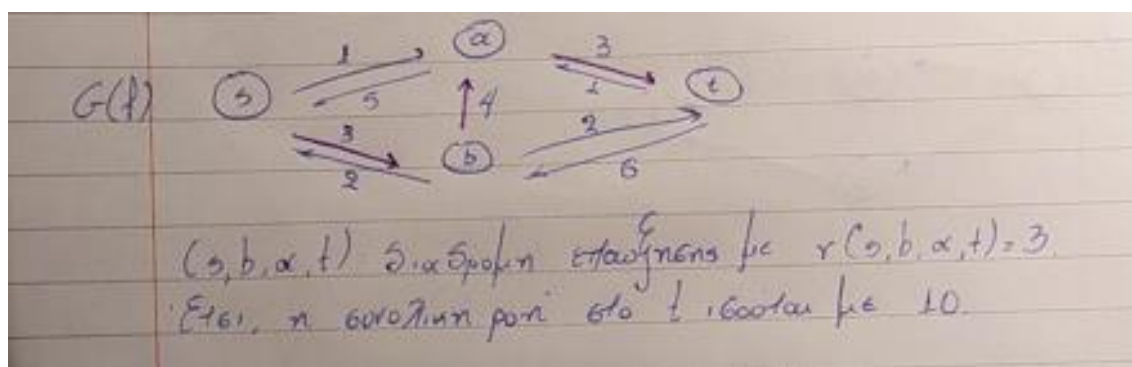 1 a 3
G(f) s 5 1 t
3 4 2
2 b 6
(s, b, α, t) διαδρομή επαύξησης με r(s, b, α, t) = 3.
Έτσι, η συνολική ροή στο t ισούται με 10.